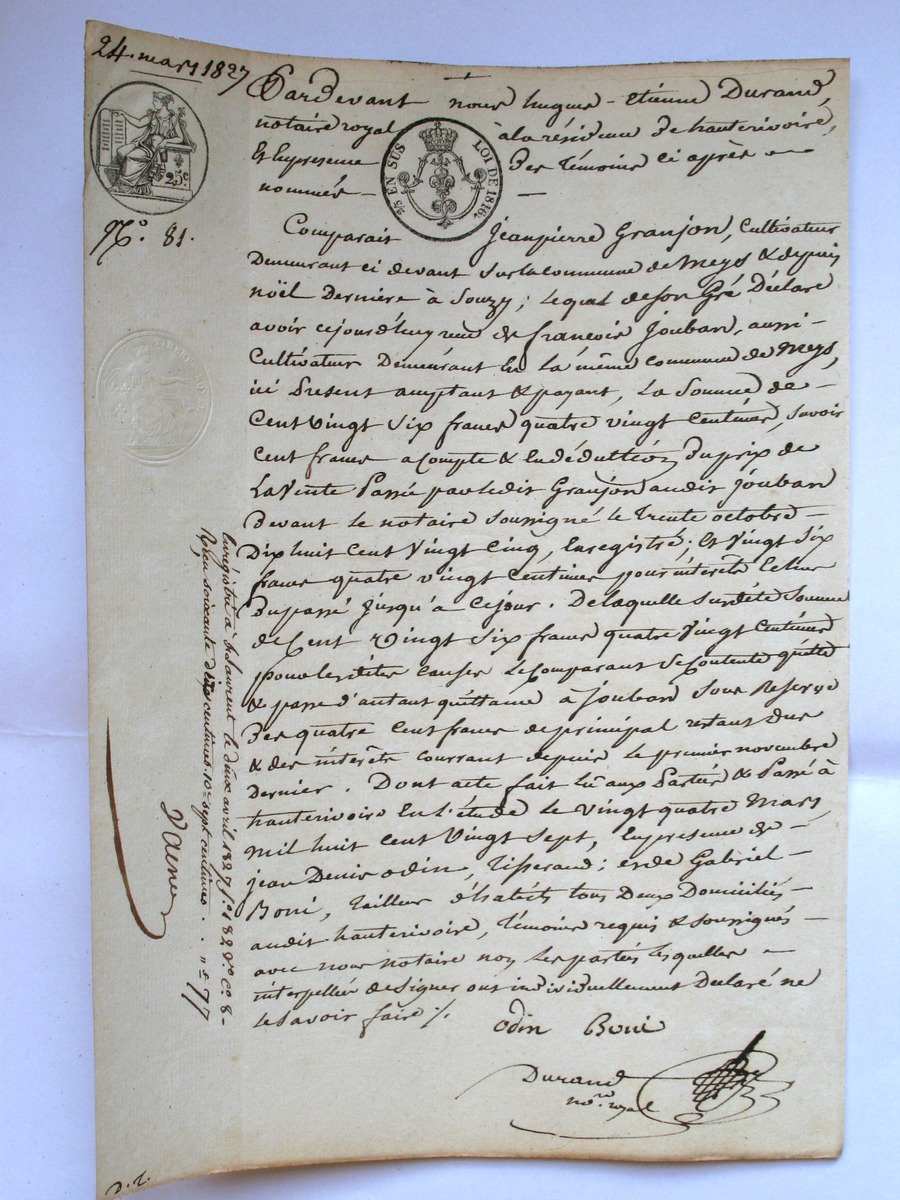 24. mars 1827
Pardevant nous hugues-etienne Durand,
notaire royal à la résidence de hauterivoire,
Et En presence des témoins ci après
nommés
25c
2/5 EN SUS LOI DE 1816.
N.o 81.
Comparait Jeanpierre Granjon, cultivateur
Demeurant ci devant sur la commune de Meys & depuis
noël dernière à Souzy; lequel de son Gré Déclare
avoir cejourd'huy reçu de françois Jouban, aussi
Cultivateur Demeurant En La même commune de Meys,
ici Present acceptant & payant, La Somme de
Cent Vingt Six francs quatre vingt Centimes, Savoir
Cent francs acompte & En déduction Du prix de
La Vente Passée par ledit Granjon audit Jouban
Devant le notaire Soussigné le trente octobre
Dix huit cent Vingt Cinq, Enregistré; Et Vingt Six
francs quatre vingt Centimes pour intérêts Echus
Du passé jusqu'à cejour. De laquelle susdite Somme
de Cent Vingt Six francs quatre Vingt Centimes
pour les dites causes Le Comparant Se Contente quitte
& passe d'autant quittance à Jouban Sous Reserve
Des quatre Cent francs de principal restant dus
& des intérêts courrant depuis le premier novembre
Dernier. Dont acte fait Lû aux Parties & Passé à
hauterivoire En l'étude le Vingt quatre Mars
mil huit cent Vingt Sept, En presence de
jean Denis odin, tisserand; et de Gabriel
Boni, tailleur d'habits tous Deux Domiciliés
audit hauterivoire, témoins requis & Soussignés
avec nous notaire non les parties lesquelles
interpellées de Signer ont individuellement Declaré ne
le Savoir faire ./.
odin Boni
Durand
no.re royal
Enregistré à St Laurent le deux avril 1827 f.o 182 V.o C.e 8
Reçu soixante dix centimes 10e sept centimes . . " f 77